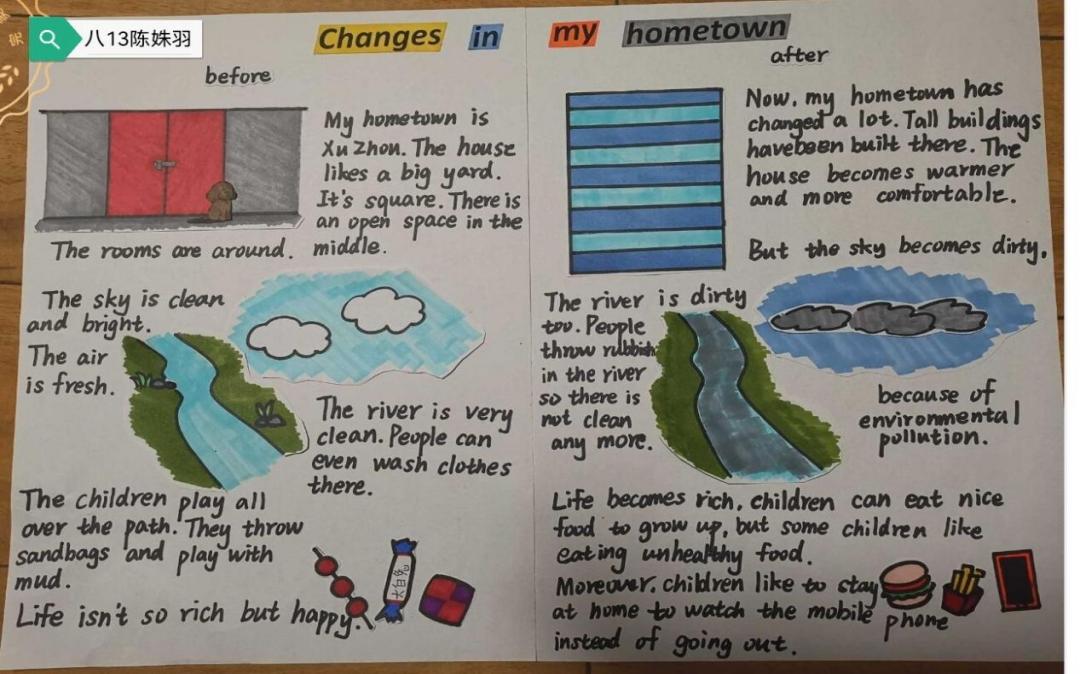 八13陈姝羽
Changes in my hometown
before
My hometown is
Xu Zhou. The house
likes a big yard.
It's square. There is
an open space in the
middle.
The rooms are around.
The sky is clean
and bright.
The air
is fresh.
The river is very
clean. People can
even wash clothes
there.
The children play all
over the path. They throw
sandbags and play with
mud.
Life isn't so rich but happy.
大白兔
after
Now, my hometown has
changed a lot. Tall buildings
have been built there. The
house becomes warmer
and more comfortable.
But the sky becomes dirty,
because of
environmental
pollution.
The river is dirty
too. People
throw rubbish
in the river
so there is
not clean
any more.
Life becomes rich, children can eat nice
food to grow up, but some children like
eating unhealthy food.
Moreover, children like to stay
at home to watch the mobile phone
instead of going out.